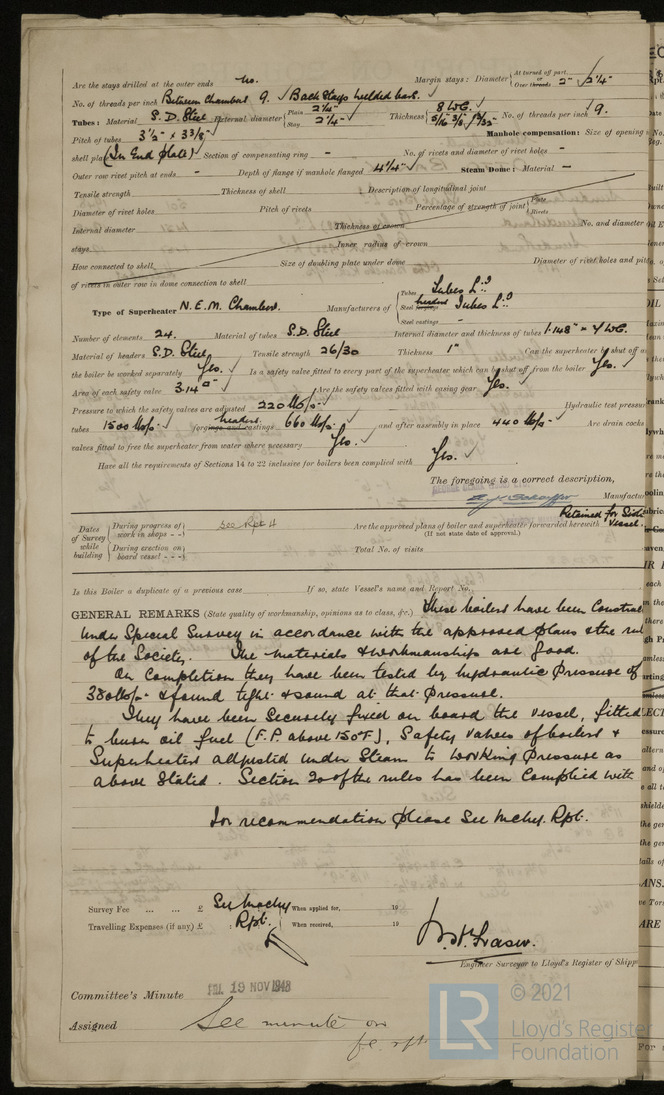 Are the stays drilled at the outer ends No. Margin stays: Diameter { At turned off part, Over threads 2" 2 1/4"
No. of threads per inch Between Chambers 9. Back Stays welded
Tubes: Material S.D. Steel External diameter { Plain 2 1/4" Stay 2 1/4" Thickness { 8 WG. 5/16" 3/8" No. of threads per inch 9.
Pitch of tubes 3 1/2" x 3 3/8" Manhole compensation: Size of opening
shell plate (In End plate) Section of compensating ring - No. of rivets and diameter of rivet holes -
Outer row rivet pitch at ends - Depth of flange if manhole flanged 4 1/4" Steam Dome: Material -
Tensile strength Thickness of shell Description of longitudinal joint
Diameter of rivet holes Pitch of rivets Percentage of strength of joint { Plate Rivets
Internal diameter Thickness of crown No. and diameter
stays Inner radius of crown
How connected to shell Size of doubling plate under dome Diameter of rivet holes and
of rivets in outer row in dome connection to shell
Type of Superheater N.E.M. Chambers. Manufacturers of { Tubes Tubes Ld.
Steel Tubes Ld.
Steel castings -
Number of elements 24. Material of tubes S.D. Steel Internal diameter and thickness of tubes 1.148" - 7 WG.
Material of headers S.D. Steel Tensile strength 26/30 Thickness 1" Can the superheater be shut off
the boiler be worked separately Yes. Is a safety valve fitted to every part of the superheater which can be shut off from the boiler Yes.
Area of each safety valve 3.14 □" Are the safety valves fitted with easing gear Yes.
Pressure to which the safety valves are adjusted 220 lbs/- Hydraulic test pressure
tubes 1500 lbs/- forgings and castings headers 660 lbs/- and after assembly in place 440 lbs/- Are drain cocks
valves fitted to free the superheater from water where necessary Yes.
Have all the requirements of Sections 14 to 22 inclusive for boilers been complied with Yes.
The foregoing is a correct description,
Manufactu
Retained for Sister Vessel.
Dates of Survey while building { During progress of work in shops - - } See Rpt 4 Are the approved plans of boiler and superheater forwarded herewith
(If not state date of approval.)
{ During erection on board vessel - - } Total No. of visits
Is this Boiler a duplicate of a previous case If so, state Vessel's name and Report No.
GENERAL REMARKS (State quality of workmanship, opinions as to class, &c.) These boilers have been Constru
Under Special Survey in accordance with the approved plans & the
of the Society. The materials & workmanships are good.
On Completion they have been tested by hydraulic pressure of
380 lbs/- & found tight & sound at that pressure.
They have been Securely fixed on board the vessel, fitted
to burn oil fuel (F.P. above 150°F), Safety valves of boilers &
Superheaters adjusted under Steam to working pressure as
above Stated. Section 20 of the rules has been Complied with
For recommendation please See Mchy. Rpt.
Survey Fee ... ... £ See Machy When applied for, 19
Travelling Expenses (if any) £ Rpt. When received, 19
Engineer Surveyor to Lloyd's Register of Shipp
Committee's Minute FRI. 19 NOV 1948
Assigned See minute on
fe. rpt
LR © 2021
Lloyd's Register
Foundation